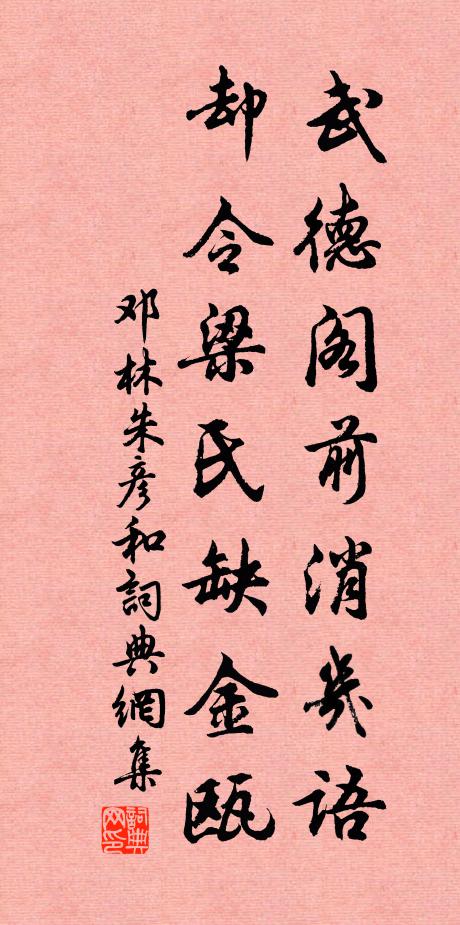 武德阁前消幾语
却令梁氏缺金瓯
邓林朱彦和詞典網集
詞典网印